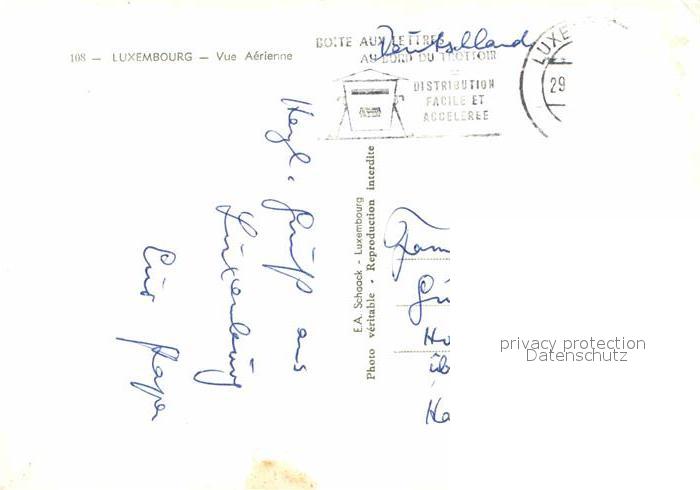 108 — LUXEMBOURG — Vue Aérienne
BOITE AUX LETTRES
AU BORD DU TROTTOIR
DISTRIBUTION
FACILE ET
ACCELEREE
Deutschland
LUXE
29
Herzl. Gruß aus
Luxemburg
Euer Papa
E.A. Schaack - Luxembourg
Photo véritable - Reproduction interdite
Fam
Gü
Ho
üb
Ha
privacy protection
Datenschutz